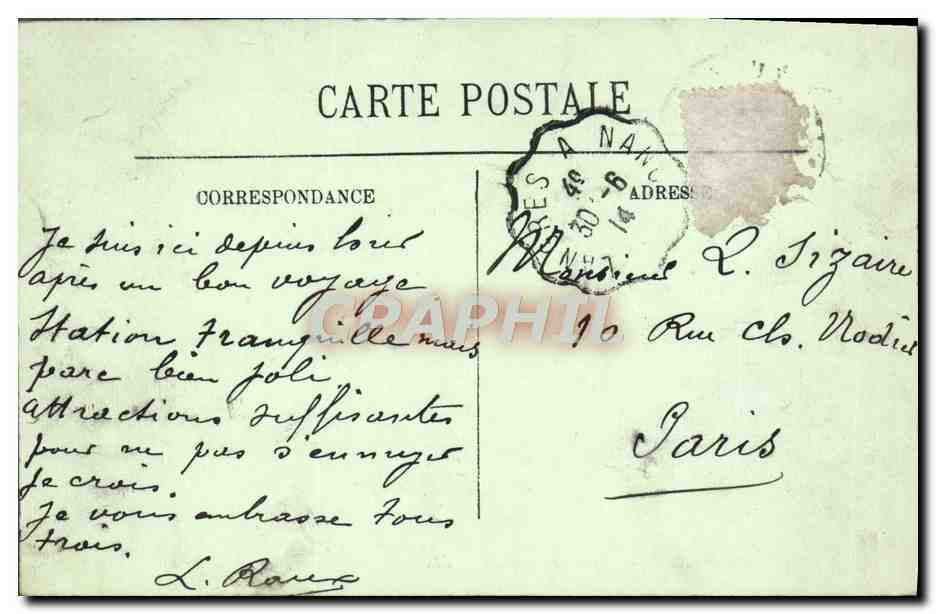 CARTE POSTALE
CORRESPONDANCE
Je suis ici depuis hier
après un bon voyage
Station tranquille mais
parc bien joli
attractions suffisantes
pour ne pas s'ennuyer
je crois.
Je vous embrasse tous
trois.
L. Roux
A NANC
49
30 -6
14
ADRESSE
Monsieur L. Sizaire
10 Rue Ch. Nodier
Paris
CPAPHIL